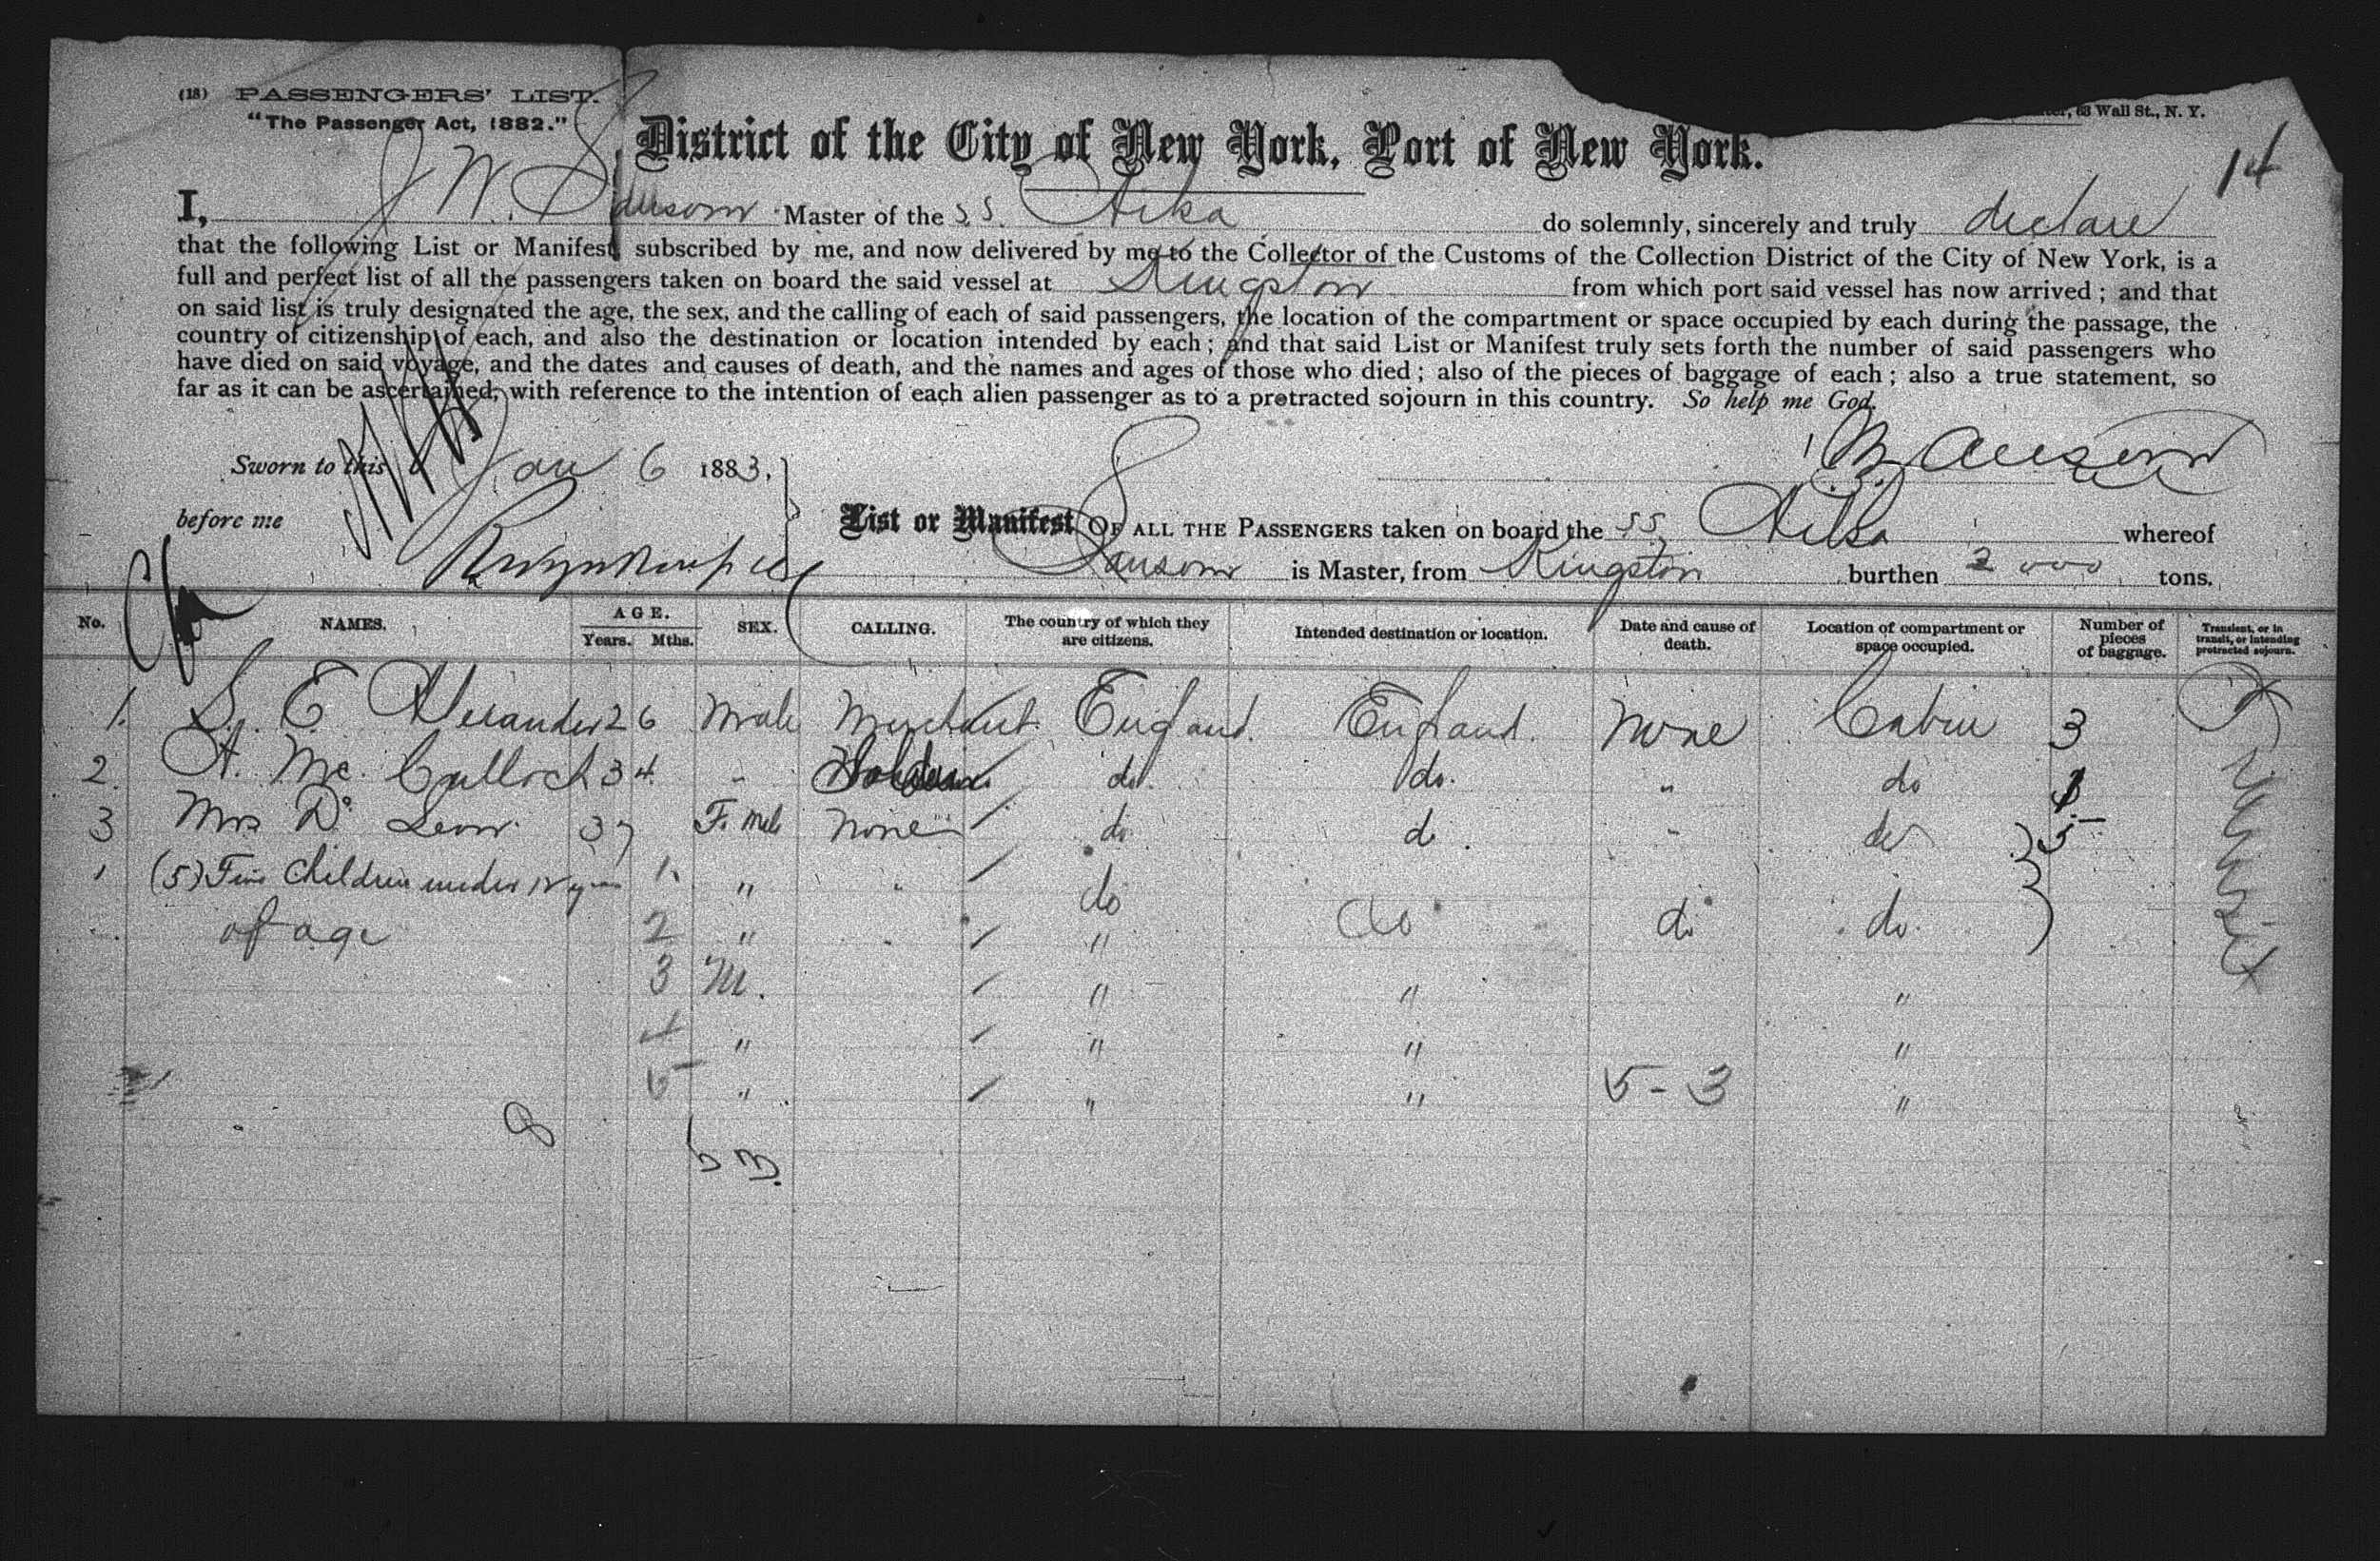 (18) PASSENGERS' LIST.
"The Passenger Act, 1882."
63 Wall St., N. Y.
District of the City of New York, Port of New York.
14
I, J W. Sansom Master of the S.S. Ailsa do solemnly, sincerely and truly declare
that the following List or Manifest, subscribed by me, and now delivered by me to the Collector of the Customs of the Collection District of the City of New York, is a
full and perfect list of all the passengers taken on board the said vessel at Kingston from which port said vessel has now arrived; and that
on said list is truly designated the age, the sex, and the calling of each of said passengers, the location of the compartment or space occupied by each during the passage, the
country of citizenship of each, and also the destination or location intended by each; and that said List or Manifest truly sets forth the number of said passengers who
have died on said voyage, and the dates and causes of death, and the names and ages of those who died; also of the pieces of baggage of each; also a true statement, so
far as it can be ascertained, with reference to the intention of each alien passenger as to a protracted sojourn in this country. So help me God.
Sworn to this Jan 6 1883, Sansom
before me
List or Manifest OF ALL THE PASSENGERS taken on board the SS Ailsa whereof
Sansom is Master, from Kingston burthen 2000 tons.
No. NAMES. AGE. Years. Mths. SEX. CALLING. The country of which they are citizens. Intended destination or location. Date and cause of death. Location of compartment or space occupied. Number of pieces of baggage. Transient, or in transit, or intending protracted sojourn.
1. S. E. Alexander 26 Male Merchant England. England. None Cabin 3
2. A. Mc. Culloch 34 " do do. " do
3 Mrs D. Leon 37 F. male None do do. " do 5
(5) Five Children under 12 years 1. " " do
of age 2 " " " do do do.
3 M. " " "
4 " " " "
5 " " " 5-3 "
8
5 3.